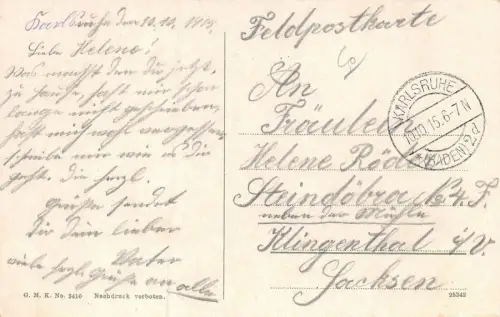 Karlsruhe den 10.10.1915.
Liebe Helene!
Was machst den du jetzt,
zu Hause, hast mir schon
lange nicht geschrieben,
hast mich wohl vergessen,
schreibe mir wie es dir
geht. Die herzl.
Grüße sendet
Dir dein lieber
Vater
viele herzl. Grüße an alle
G. M. K. No. 2410 Nachdruck verboten.
Feldpostkarte
An
Fräulein
Helene
Steindöbra
neben der Mühle
Klingenthal i/V.
Sachsen
25242
KARLSRUHE
10.10.15. 6-7 N
(BADEN) 2